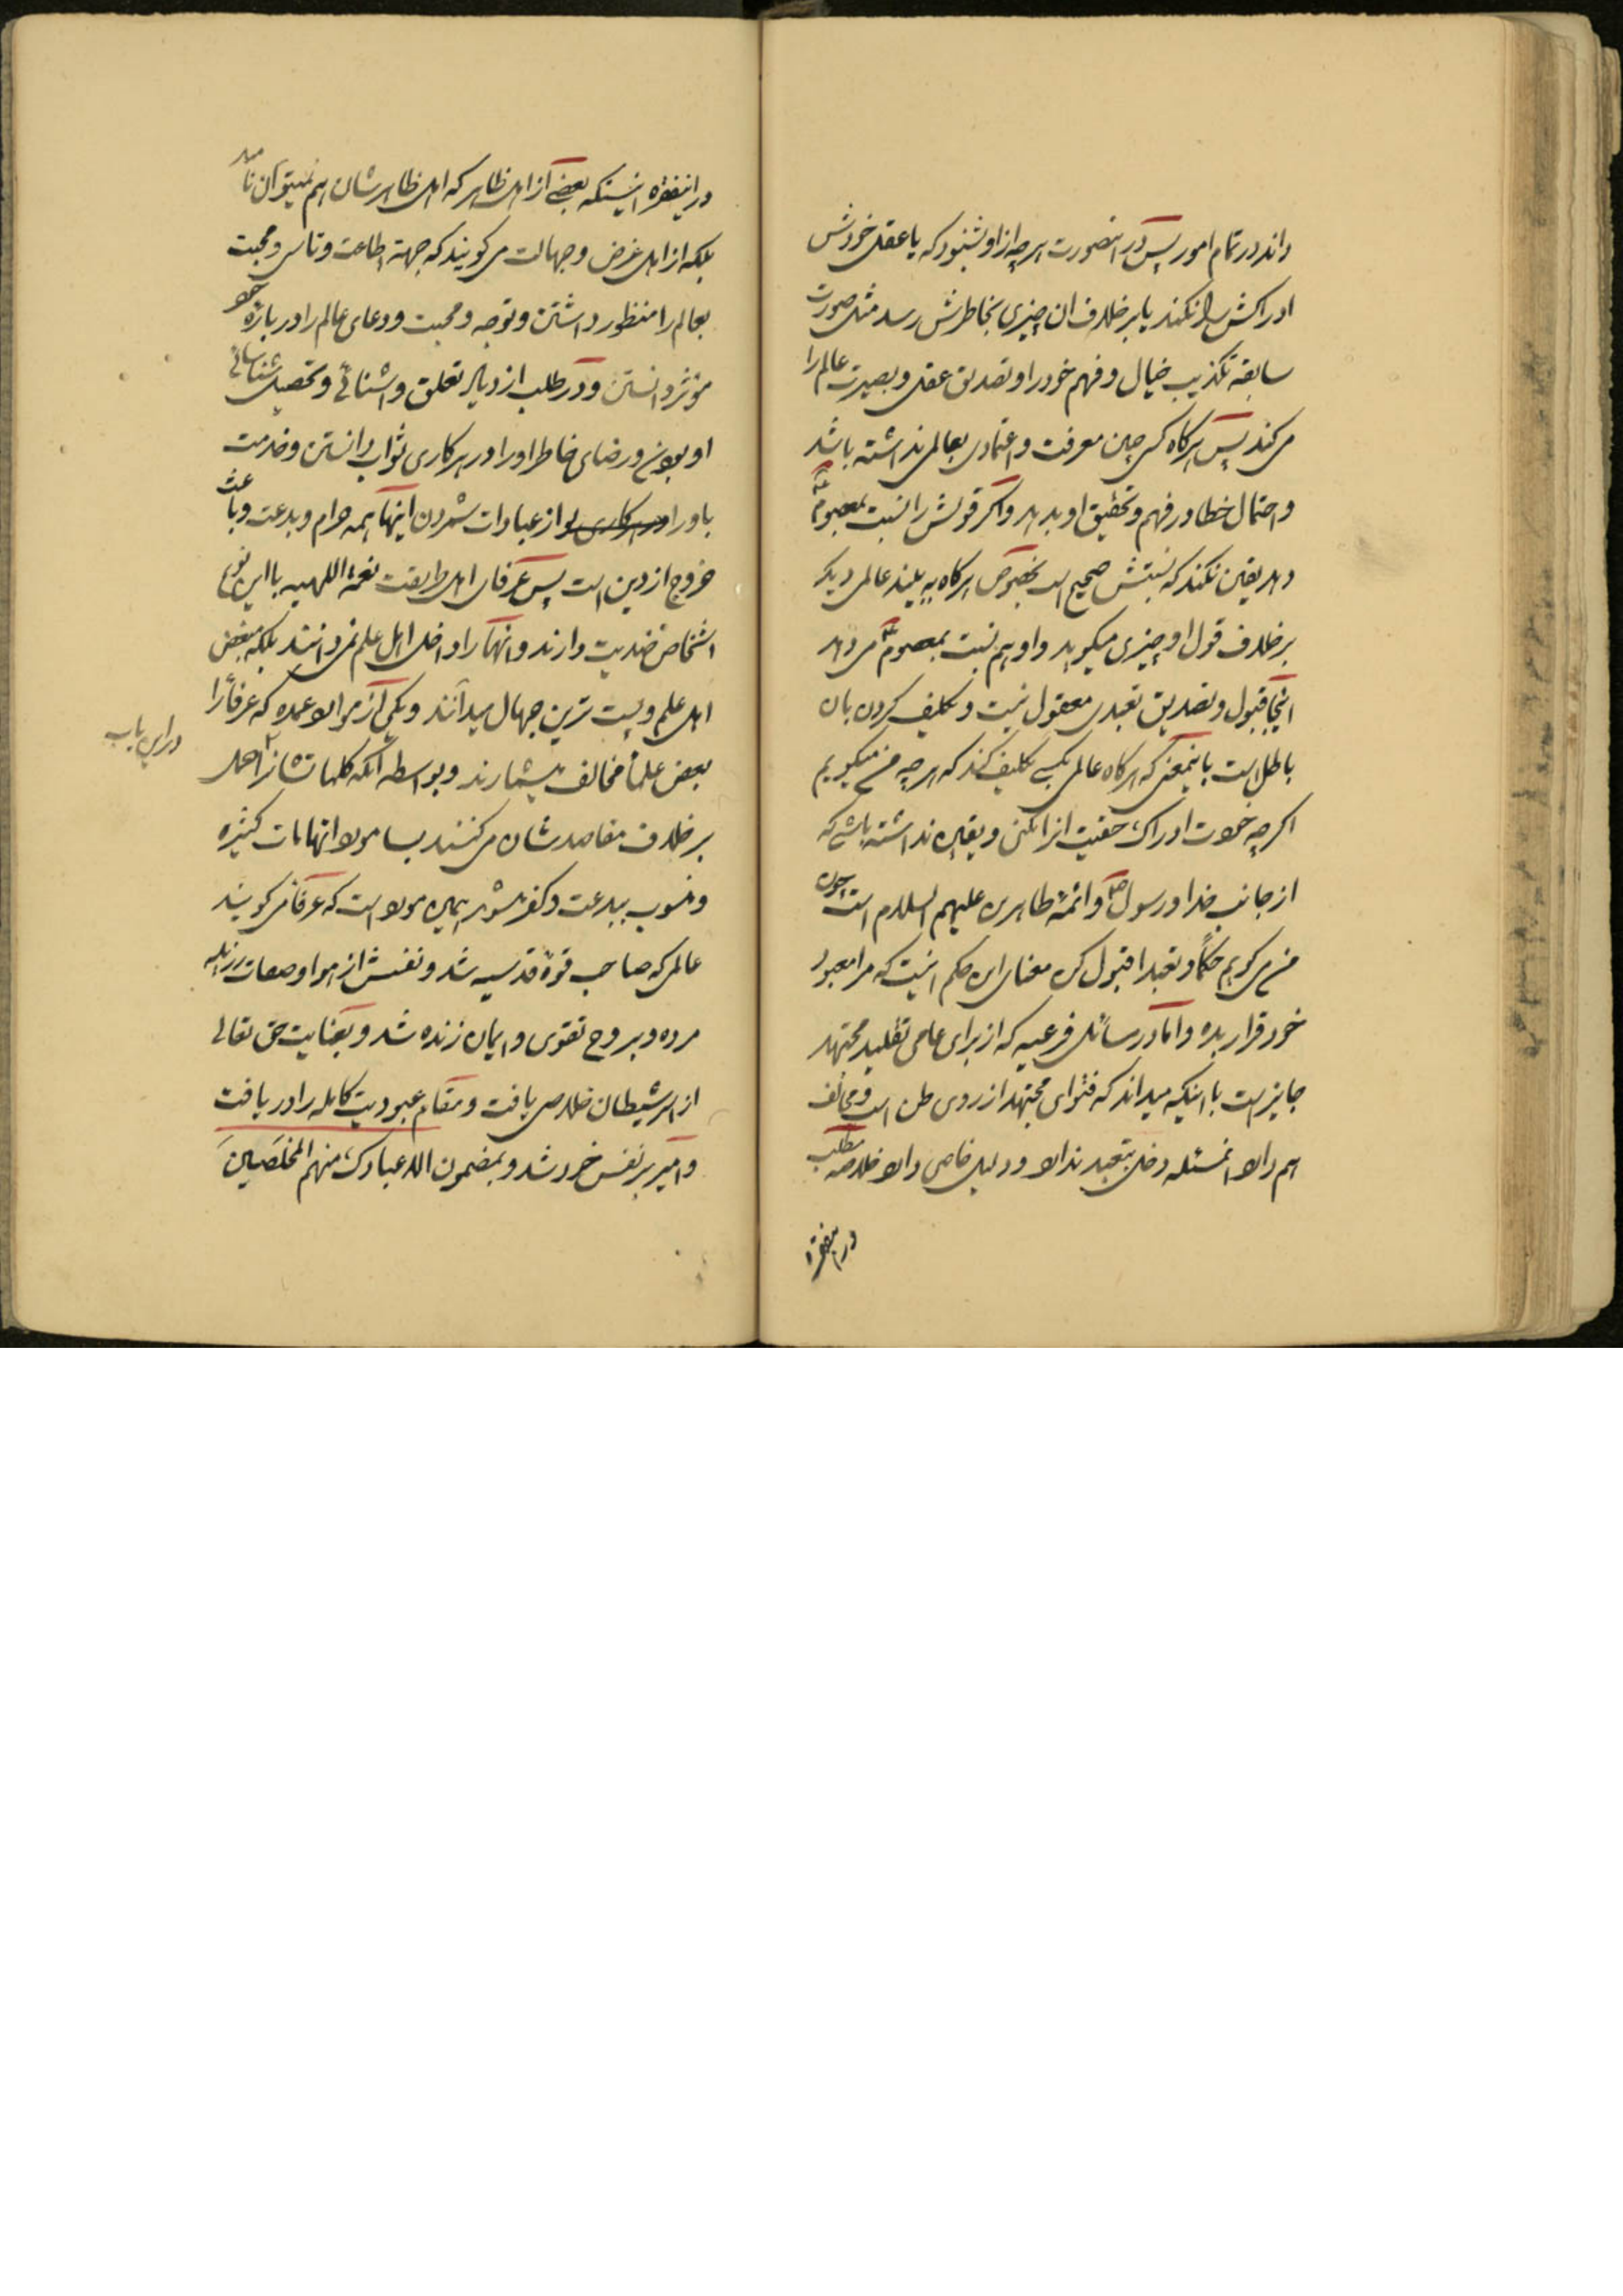 داند در تمام امور پس در اینصورت هر چه از او بشنود که یا عقل خودش
ادراکش را نکند یا بر خلاف ان چیزی بخاطرش رسد مثل صورت
سابقه تکذیب خیال و فهم خود را و تصدیق عقل و بصیرت عالم را
می کند پس هرکاه کسی چنین معرفت و اعتمادی بعالمی نداشته باشد
و احتمال خطا در فهم و تحقیق او بدهد و اکر قولش را نسبت بمعصوم
دهد یقین نکند که نسبتش صحیح است بخصوص هرکاه به بیند عالمی دیکر
بر خلاف قول او چیزی میکوید و او هم نسبت بمعصوم می دهد
اینجا قبول و تصدیق تعبدی معقول نیست و تکلیف کردن بان
باطل است باینمعنی که هرکاه عالمی بکسی تکلیف کند که هر چه من میکویم
اکر چه خودت ادراک حقیت انرا نکنی و یقین نداشته باشی که
از جانب خدا و رسول و ائمه طاهرین علیهم السلام است چون
من می کویم حکماً و تعبدا قبول کن معنای این حکم اینست که مرا معبود
خود قرار بده و اما در رسائل فرعیه که از برای عامی تقلید مجتهد
جایز است با اینکه میداند که فتوای مجتهد از روی ظن است و مخالف
هم دارد انمسئله دخل بتعبد ندارد و دلیل خاص دارد خلاصه مطلب
در اینفقره
در اینفقره اینستکه بعضی از اهل ظاهر که اهل ظاهرشان هم نمیتوان نامید
بلکه از اهل غرض و جهالت می کویند که جهة اطاعت و تاسی و محبت
بعالم را منظور داشتن و توجه و محبت و دعای عالم را در باره خود
مؤثر دانستن و در طلب ازدیاد تعلق و اشنائی و تحصیل شناسائی
او بودن و رضای خاطر او را در هر کاری ثواب دانستن و خدمت
باو را در هر کاری او از عبادات شمردن اینها همه حرام و بدعت و باعث
خروج از دین است پس عرفای اهل طریقت نعمة اللهیه با این نوع
اشخاص ضدیت دارند و انها را داخل اهل علم نمی دانند بلکه مبغض
اهل علم و پست ترین جهال میدانند و یکی از موارد عمده که عرفا را
در این باب
بعض علما مخالف میشمارند و بواسطه آنکه کلماتشانرا حمل
بر خلاف مقاصدشان می کنند بسا مورد اتهامات کثیره
و منسوب ببدعت و کفر میشوند همین مورد است که عرفا می کویند
عالمی که صاحب قوة قدسیه شد و نفسش از هوا و صفات رزیله
مرده و بروح تقوی و ایمان زنده شد و بعنایت حق تعالی
از اسر شیطان خلاصی یافت و مقام عبودیت کامله را دریافت
و امیر بر نفس خود شد و بمضمون الا عبادک منهم المخلصین